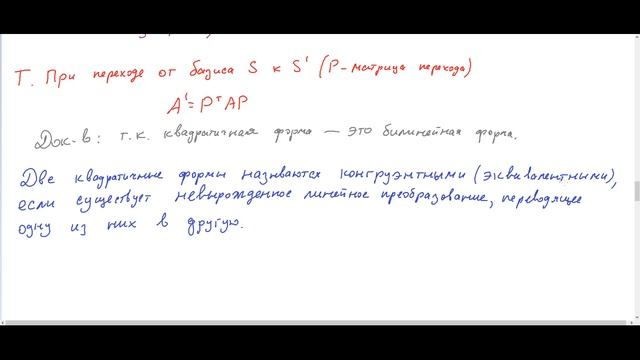 Т. При переходе от базиса S к S' (P-матрица перехода)
A' = PᵀAP
Док-в: т.к. квадратичная форма — это билинейная форма.
Две квадратичные формы называются конгруэнтными (эквивалентными),
если существует невырожденное линейное преобразование, переводящее
одну из них в другую.